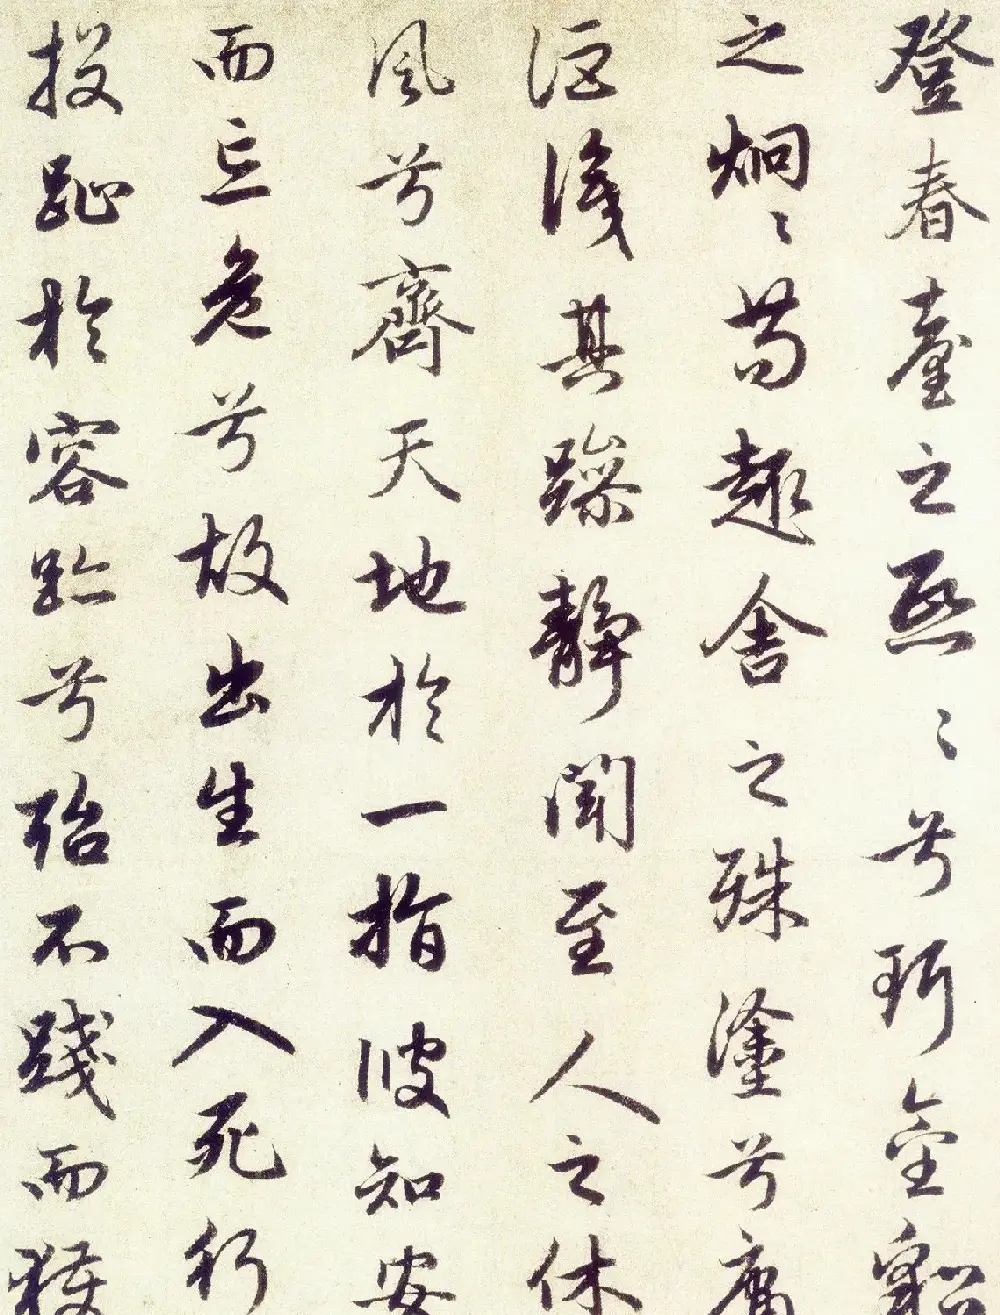 登春臺之熙〻兮珥金貂
之烱〻苟趣舍之殊塗兮庸
詎識其躁靜聞至人之休
風兮齊天地於一指彼知安
而忘危兮故出生而入死行
投趾於容跡兮殆不踐而獲